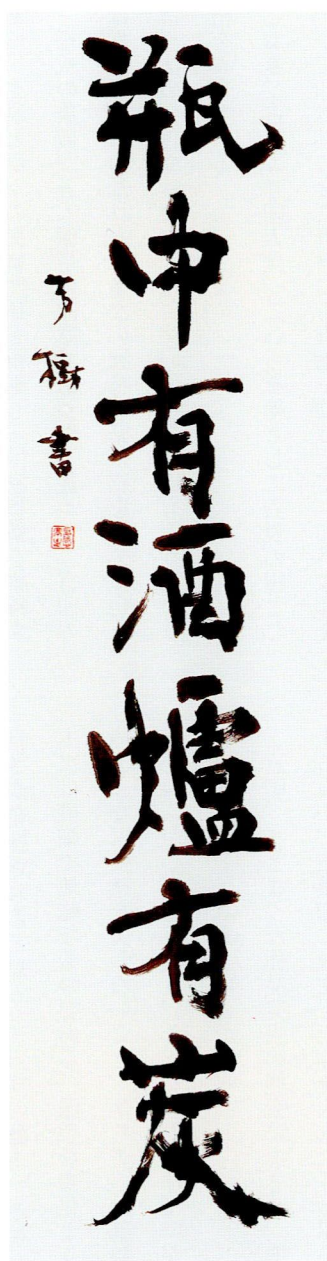 瓶中有酒爐有炭
芳樹書